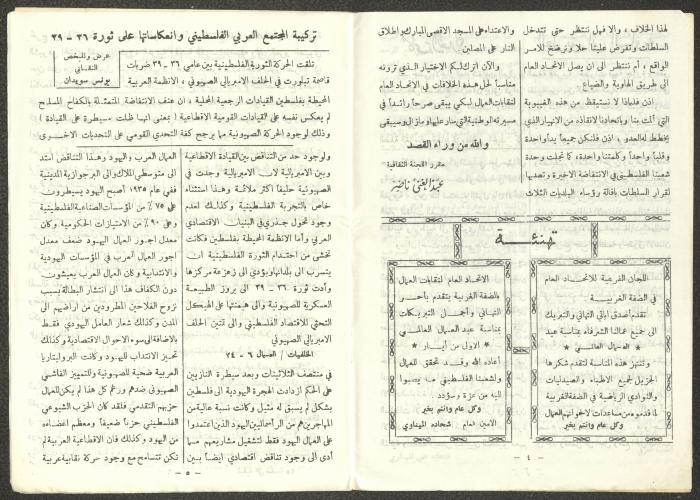 لهذا الخلاف ، والا فهل ننتظر حتى تتدخل
السلطات وتفرض علينا حلا ونرضخ للامر
الواقع ، أم ننتظر الى ان يصل الاتحاد العام
الى طريق الهاوية والضياع .
اذن فلماذا لا نستيقظ من هذه الغيبوبة
التي ألمت بنا وباتحادنا لانقاذه من الانهيار الذي
يخطط له العدو ، اذن فلنكن جميعاً يداً واحدة
وقلباً واحداً وكلمتنا واحدة ، كما تجلت وحدة
شعبنا الفلسطيني في الانتفاضة الاخيرة وتصديها
لقرار السلطات باقالة رؤساء البلديات الثلاث
والاعتداء على المسجد الاقصى المبارك واطلاق
النار على المصلين
والآن اترك لكم الاختيار الذي ترونه
مناسباً لحل هذه الخلافات في الاتحاد العام
لنقابات العمال لبكي يبقى صرحاً رائداً في
مسيرته الوطنية التي سار عليها وما زال وسيبقى
والله من وراء القصد
مقرر اللجنة الثقافية
عبد الغني ناصر
تهنئة
اللجان الفرعية للاتحاد العام
في الضفة الغربية
تقدم أصدق اماني التهاني والتبريك
الى جميع عمالنا الشرفاء بمناسبة عيد
العمال العالمي
وتنتهز هذه المناسبة لتقدم شكرها
الجزيل لجميع الاطباء والصيدليات
والنوادي الرياضية في الضفة الغربية
لما قدموه من مساعدات لاخوانهم العمال
وكل عام وانتم بخير
الاتحاد العام لنقابات العمال
بالضفة الغربية يتقدم بأحر
التهاني وأجمل التبريكات
بمناسبة عيد العمال العالمي
الاول من أيار
أعاده الله وقد تحقق للعمال
ولشعبنا الفلسطيني ما يصبوا
اليه من عزة وسؤدد .
وكل عام وانتم بخير
الامين العام شحاده المهناوي
- ٤ -
تركيبة المجتمع العربي الفلسطيني وانعكاساتها على ثورة ٣٦ - ٣٩
عرض وتلخيص
النقابي
يونس سويدان
تلقت الحركة الثورية الفلسطينية بين عامي ٣٦ - ٣٩ ضربات
قاصمة تبلورت في الحلف الامبريالي الصهيوني ، الانظمة العربية
المحيطة بفلسطين القيادات الرجعية المحلية ، ان عنف الانتفاضة المتمثلة بالكفاح المسلح
لم يعكس نفسه على القيادات القومية الاقطاعية ( بمعنى انها ظلت مسيطرة على القيادة )
وذلك لوجود الحركة الصهيونية مما يرجح كفة التحدي القومي على التحديات الاخرى
ولوجود حد من التناقض بين القيادة الاقطاعية
وبين الامبريالية لان الامبريالية وجدت في
الصهيونية حليفاً اكثر ملائمة وهذا استثناء
خاص بالتجربة الفلسطينية وكذلك لعدم
وجود تحول جذري في البنيان الاقتصادي
العربي وأما الانظمة المحيطة بفلسطين فكانت
تخشى من احتدام الثورة الفلسطينية ان
يتسرب الى بلدانها ويؤدي الى زعزعة مركزها
وأدت ثورة ٣٦ - ٣٩ الى بروز الطبيعة
العسكرية للصهيونية والى هيمنتها على الهيكل
التحتي للاقتصاد الفلسطيني والى تمتين الحلف
الامبريالي الصهيوني
الخلفيات / العمال ٦ - ٢٤
في منتصف الثلاثينات وبعد سيطرة النازيين
على الحكم ازدادت الهجرة اليهودية الى فلسطين
بشكل لم يسبق له مثيل وكانت نسبة عالية من
المهاجرين هم من الرأسماليين اليهود الذين اعتمدوا
على العمال اليهود فقط لتشغيل مشاريعهم مما
أدى الى وجود تناقض اقتصادي ايضاً بين
العمال العرب واليهود وهذا التناقض امتد
الى متوسطي الملاك والى البرجوازية المدينية
ففي عام ١٩٣٥ أصبح اليهود يسيطرون
على ٧٥ ٪ من المؤسسات الصناعية الفلسطينية
وعلى ٩٠ ٪ من الامتيازات الحكومية وكان
معدل اجور العمال اليهود ضعف معدل
اجور العمال العرب في المؤسسات اليهودية
والانتدابية وكان العمال العرب يعيشون
دون الكفاف هذا الى انتشار البطالة بسبب
نزوح الفلاحين المطرودين من اراضيهم الى
المدن وكذلك شعار العامل اليهودي فقط
بالاضافة الى سوء الاحوال الاقتصادية وكذلك
تحيز الانتداب لليهود وكانت البروليتاريا
العربية ضحية للصهيونية وللتمييز الفاشي
الصهيوني ضدهم ورغم كل هذا لم يكن للعمال
حزبهم التقدمي فلقد كان الحزب الشيوعي
الفلسطيني حزباً ضعيفاً ومعظم اعضاءه
من اليهود وكذلك فان الاقطاعية العربية لم
تكن تتسامح مع وجود حركة نقابية عربية
- ٥ -